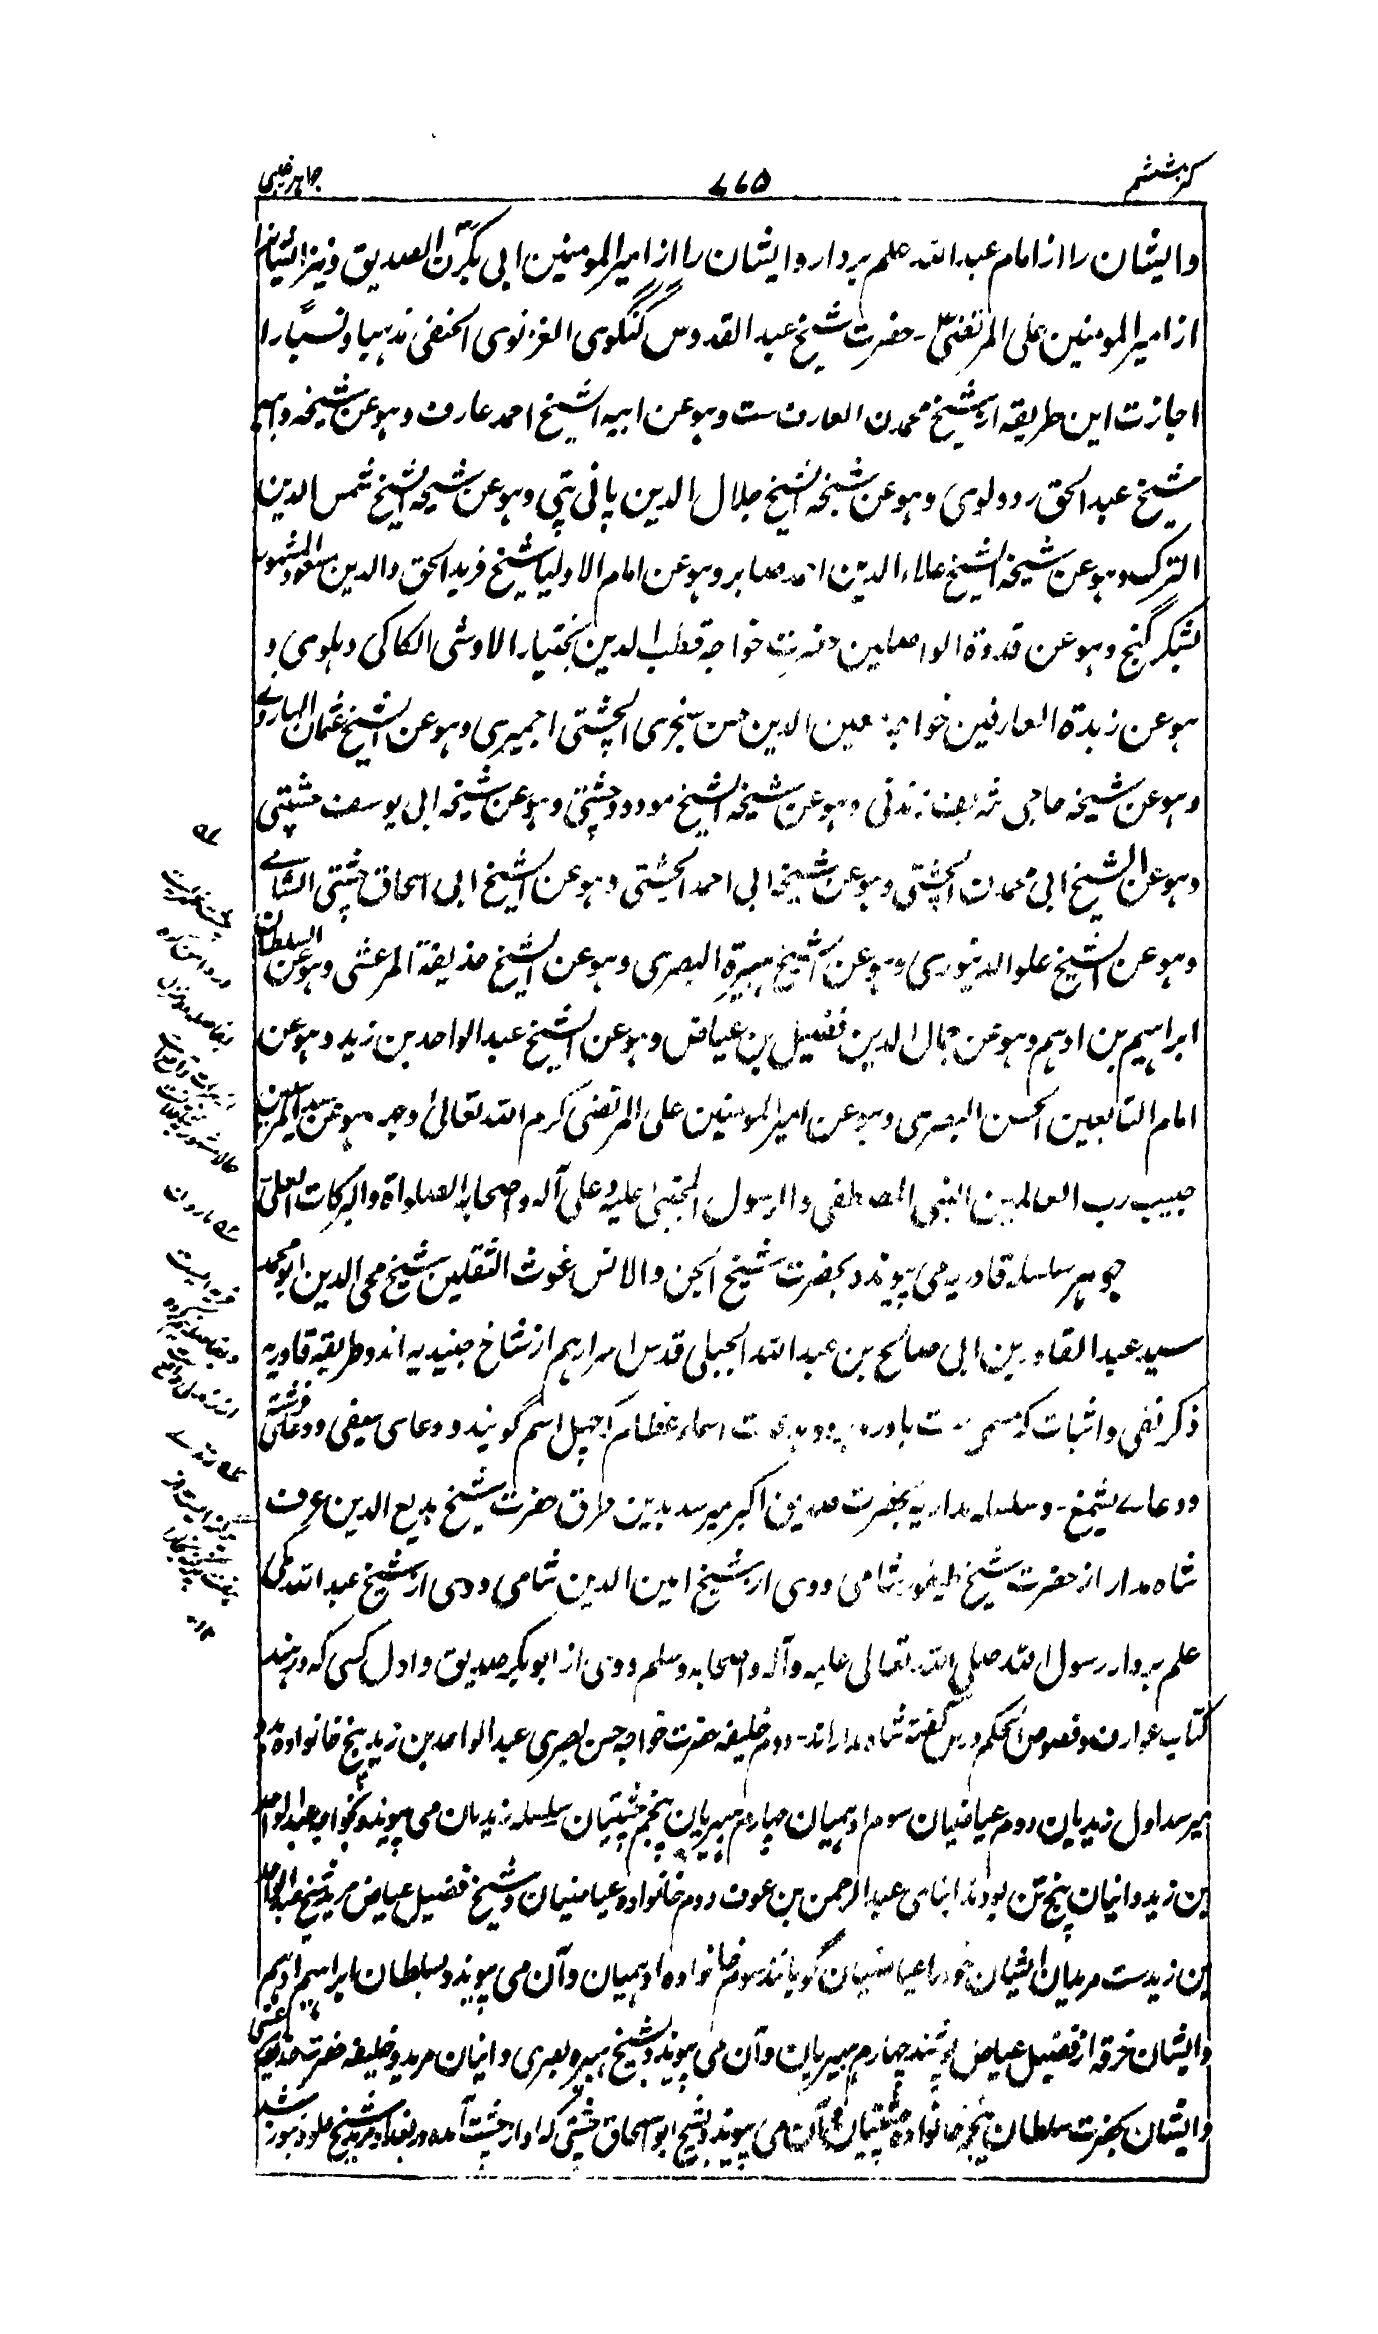 کنز ششم
۷۶۵
جواهر غیبی
و ایشان را از امام عبدالله علم بردار و ایشان را از امیرالمومنین ابی بکرن الصدیق و نیز ایشانرا
از امیرالمومنین علی المرتضیٰ ـ حضرت شیخ عبدالقدوس گنگوہی الغزنوی الحنفی مذہبا و نسبًا را
اجازت این طریقہ از شیخ محمدن العارف ست و ہو عن ابیہ الشیخ احمد عارف و ہو عن شیخہ و ابیہ
شیخ عبدالحق ردولوی و ہو عن شیخہ الشیخ جلال الدین پانی پتی و ہو عن شیخہ الشیخ شمس الدین
الترک و ہو عن شیخہ الشیخ علاء الدین احمد صابر و ہو عن امام الاولیا شیخ فرید الحق والدین مسعود المشہور
بشکر گنج و ہو عن قدوۃ الواصلین حضرت خواجہ قطب الدین بختیار الاوشی الکاکی دہلوی و
ہو عن زبدۃ العارفین خواجہ معین الدین حسن سنجری الچشتی اجمیری و ہو عن الشیخ عثمان الہارونے
و ہو عن شیخہ حاجی شریف زندنی و ہو عن شیخہ الشیخ مودود چشتی و ہو عن شیخہ ابی یوسف چشتی
و ہو عن الشیخ ابی محمدن الچشتی و ہو عن شیخہ ابی احمد الچشتی و ہو عن الشیخ ابی اسحاق چشتی الشامے
و ہو عن الشیخ علو الدینوری و ہو عن الشیخ ہبیرۃ البصری و ہو عن الشیخ حذیفۃ المرعشی و ہو عن السلطان
ابراہیم بن ادہم و ہو عن جمال الدین فضیل بن عیاض و ہو عن الشیخ عبدالواحد بن زید و ہو عن
امام التابعین الحسن البصری و ہو عن امیرالمومنین علی المرتضی کرم اللہ تعالیٰ وجہہ و ہو عن سید المرسلین
حبیب رب العالمین النبی المصطفی والرسول المجتبیٰ علیہ و علی آلہ و اصحابہ الصلواۃ والبرکات العلیٰ
جوہر سلسلہ قادریہ می پیوندد بحضرت شیخ الجن والانس غوث الثقلین شیخ محی الدین ابو محمد
سید عبدالقادر بن ابی صالح بن عبداللہ الجیلی قدس اسرارہم از شاخ جنیدیہ اند و طریقہ قادریہ
ذکر نفی و اثبات کہ اسماء عظام کہ چہل اسم گویند و دعای سیفی و دعای فرشتہ
و دعاے یشمخ ـ و سلسلہ مداریہ بحضرت صدیق اکبر میرسد بدین طرق حضرت شیخ بدیع الدین عرف
شاہ مدار از حضرت شیخ طیفور شامی و وی از شیخ امین الدین شامی و وی از شیخ عبداللہ مکی
علم بردار رسول اللہ صلی اللہ تعالی علیہ و آلہ و اصحابہ وسلم و وی از ابوبکر صدیق و اول کسی کہ در ہند
کتاب عوارف و فصوص الحکم درس گفتہ شاہ مدار اند ـ دوم خلیفہ حضرت خواجہ حسن بصری عبدالواحد بن زید پنج خانوادہ بدو
میرسد اول زیدیان دوم عیاضیان سوم ادہمیان چہارم ہبیریان پنجم چشتیان سلسلہ زیدیان می پیوندد بخواجہ عبدالواحد
بن زید و ایشان پنج تن بودند ابنای عبدالرحمن بن عوف دوم خانوادہ عیاضیان و شیخ فضیل عیاض مرید شیخ عبدالواحد
بن زیدست مریدان ایشان خود را عیاضیان گویانند سوم خانوادہ ادہمیان و آن می پیوندد بسلطان ابراہیم ادہم
و ایشان خرقہ از فضیل عیاض پوشند چہارم ہبیریان و آن می پیوندد بشیخ ہبیرہ بصری و ایشان مرید و خلیفہ حضرت حذیفہ مرعشی
و ایشان بحضرت سلطان پنجم خانوادہ چشتیان و آن می پیوندد بشیخ ابو اسحاق چشتی کہ او از چشت آمدہ در بغداد مرید شیخ علو دینوری شد